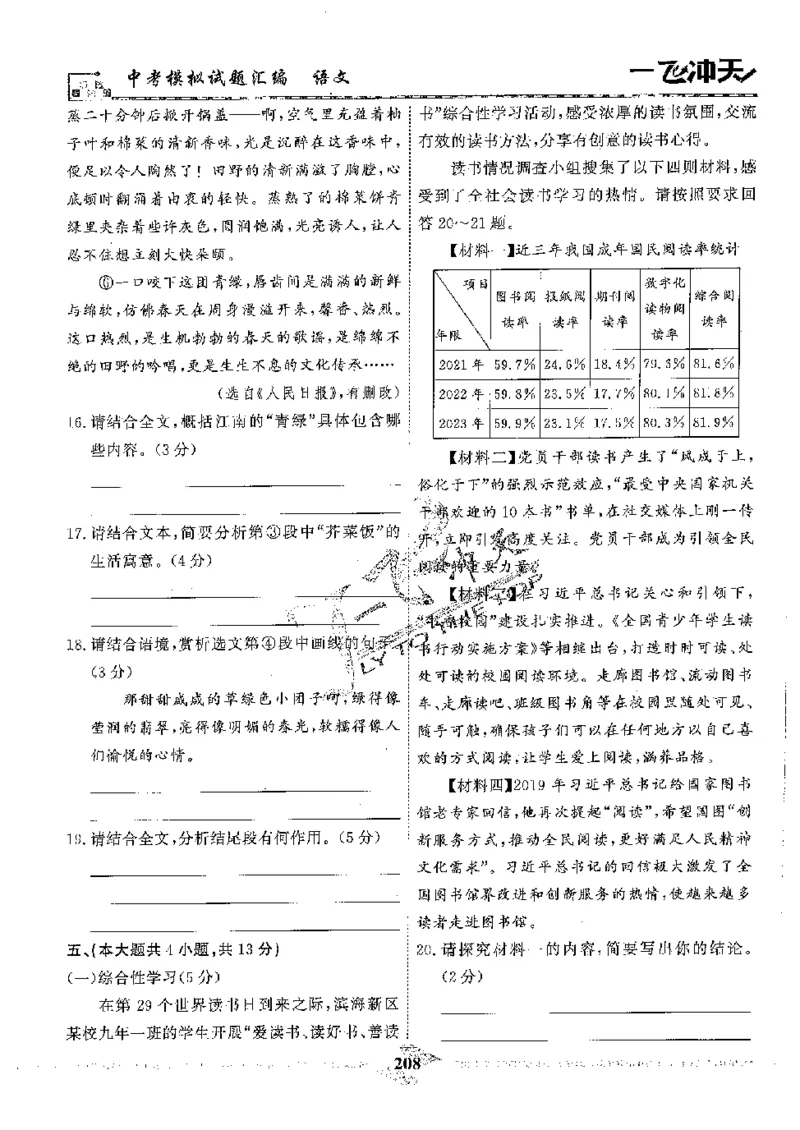 中考模拟试题汇编 语文
一飞冲天
蒸二十分钟后掀开锅盖——啊,空气里充盈着柚
子叶和棉菜的清新香味,光是沉醉在这香味中,
便足以令人陶然了！田野的清新满溢了胸膛,心
底顿时翻涌着由衷的轻快。蒸熟了的棉菜饼青
绿里夹杂着些许灰色,圆润饱满,光亮诱人,让人
忍不住想立刻大快朵颐。
⑥一口咬下这团青绿,唇齿间是满满的新鲜
与绵软,仿佛春天在周身漫溢开来,馨香、热烈。
这口热烈,是生机勃勃的春天的歌谣,是绵绵不
绝的田野的吟唱,更是生生不息的文化传承……
(选自《人民日报》,有删改)
16. 请结合全文,概括江南的“青绿”具体包含哪
些内容。(3分)
17. 请结合文本,简要分析第③段中“荠菜饭”的
生活寓意。(4分)
18. 请结合语境,赏析选文第④段中画线的句子。
(3分)
那甜甜咸咸的草绿色小团子啊,绿得像
莹润的翡翠,亮得像明媚的春光,软糯得像人
们愉悦的心情。
19. 请结合全文,分析结尾段有何作用。(5分)
五、(本大题共4小题,共13分)
(一)综合性学习(5分)
在第29个世界读书日到来之际,滨海新区
某校九年一班的学生开展“爱读书、读好书、善读
书”综合性学习活动,感受浓厚的读书氛围,交流
有效的读书方法,分享有创意的读书心得。
读书情况调查小组搜集了以下四则材料,感
受到了全社会读书学习的热情。请按照要求回
答20~21题。
【材料一】近三年我国成年国民阅读率统计
项目 图书阅读率 报纸阅读率 期刊阅读率 数字化读物阅读率 综合阅读率
年限
2021年 59.7% 24.6% 18.4% 79.6% 81.6%
2022年 59.8% 23.5% 17.7% 80.1% 81.8%
2023年 59.9% 23.1% 17.5% 80.3% 81.9%
【材料二】党员干部读书产生了“风成于上,
俗化于下”的强烈示范效应,“最受中央国家机关
干部欢迎的10本书”书单,在社交媒体上刚一传
开,立即引发高度关注。党员干部成为引领全民
阅读的重要力量。
【材料三】在习近平总书记关心和引领下,
“书香校园”建设扎实推进。《全国青少年学生读
书行动实施方案》等相继出台,打造时时可读、处
处可读的校园阅读环境。走廊图书馆、流动图书
车、走廊读吧、班级图书角等在校园里随处可见、
随手可触,确保孩子们可以在任何地方以自己喜
欢的方式阅读,让学生爱上阅读,涵养品格。
【材料四】2019年习近平总书记给国家图书
馆老专家回信,他再次提起“阅读”,希望国图“创
新服务方式,推动全民阅读,更好满足人民精神
文化需求”。习近平总书记的回信极大激发了全
国图书馆界改进和创新服务的热情,使越来越多
读者走进图书馆。
20. 请探究材料一的内容,简要写出你的结论。
(2分)
208
一飞冲天
FLY TO THE TOP